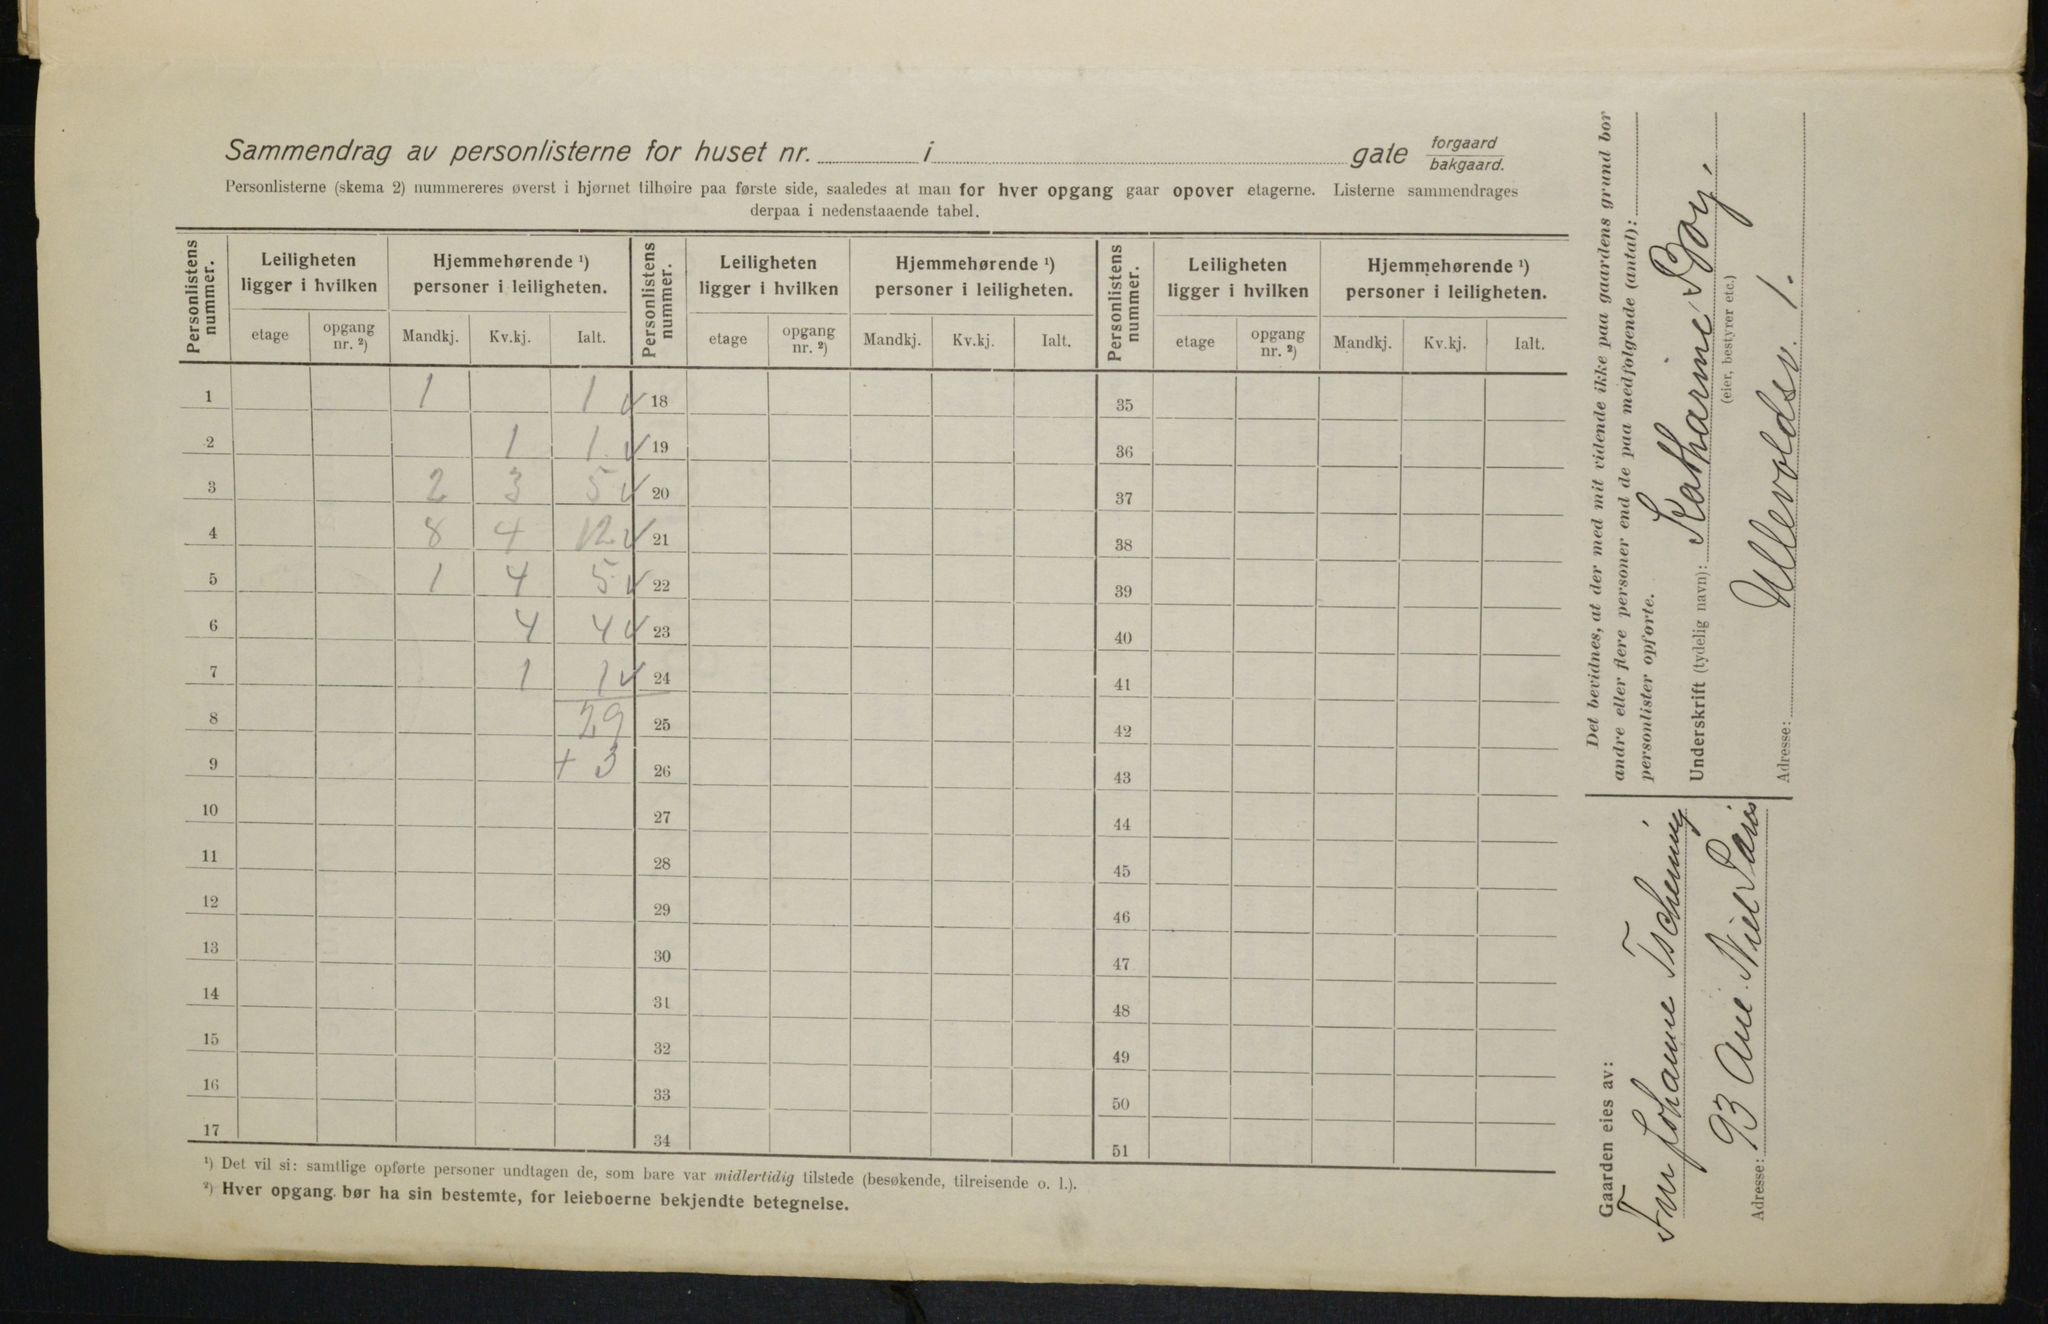 Sammendrag av personlisterne for huset nr. i gate forgaard
bakgaard.
Personlisterne (skema 2) nummereres øverst i hjørnet tilhøire paa første side, saaledes at man for hver opgang gaar opover etagerne. Listerne sammendrages
derpaa i nedenstaaende tabel.
Personlistens nummer. Leiligheten ligger i hvilken Hjemmehørende ¹) personer i leiligheten. Personlistens nummer. Leiligheten ligger i hvilken Hjemmehørende ¹) personer i leiligheten. Personlistens nummer. Leiligheten ligger i hvilken Hjemmehørende ¹) personer i leiligheten.
etage opgang nr. ²) Mandkj. Kv.kj. Ialt. etage opgang nr. ²) Mandkj. Kv.kj. Ialt. etage opgang nr. ²) Mandkj. Kv.kj. Ialt.
1 1 1 ✓ 18 35
2 1 1 ✓ 19 36
3 2 3 5 ✓ 20 37
4 8 4 12 ✓ 21 38
5 1 4 5 ✓ 22 39
6 4 4 ✓ 23 40
7 1 1 ✓ 24 41
8 29 25 42
9 + 3 26 43
10 27 44
11 28 45
12 29 46
13 30 47
14 31 48
15 32 49
16 33 50
17 34 51
¹) Det vil si: samtlige opførte personer undtagen de, som bare var midlertidig tilstede (besøkende, tilreisende o. l.).
²) Hver opgang bør ha sin bestemte, for leieboerne bekjendte betegnelse.
Det bevidnes, at der med mit vidende ikke paa gaardens grund bor
andre eller flere personer end de paa medfølgende (antal):
personlister opførte.
Underskrift (tydelig navn): Katharine Boy.
(eier, bestyrer etc.)
Adresse: Ullevoldsv. 1.
Gaarden eies av:
Fru Johanne Tscherning
Adresse: 93 Ave Niel Paris